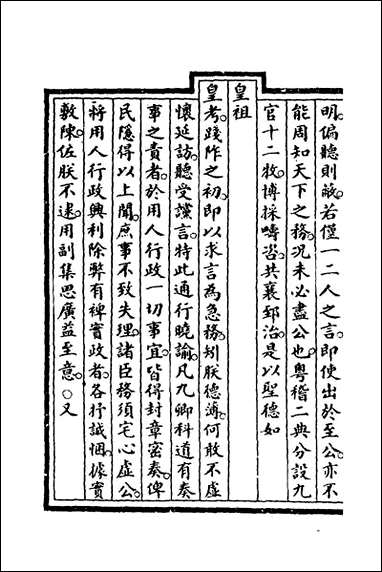 明偏聽則蔽若僅一二人之言即使出於至公亦不
能周知天下之務況未必盡公也粵稽二典分設九
官十二牧博採疇咨共襄郅治是以聖德如
皇祖
皇考踐阼之初即以求言為急務矧朕德薄何敢不虛
懷延訪聽受讜言特此通行曉諭凡九卿科道有奏
事之責者於用人行政一切事宜皆得封章密奏俾
民隱得以上聞庶事不致失理諸臣務須宅心虛公
將用人行政興利除弊有裨實政者各抒誠悃據實
敷陳佐朕不逮用副集思廣益至意○又